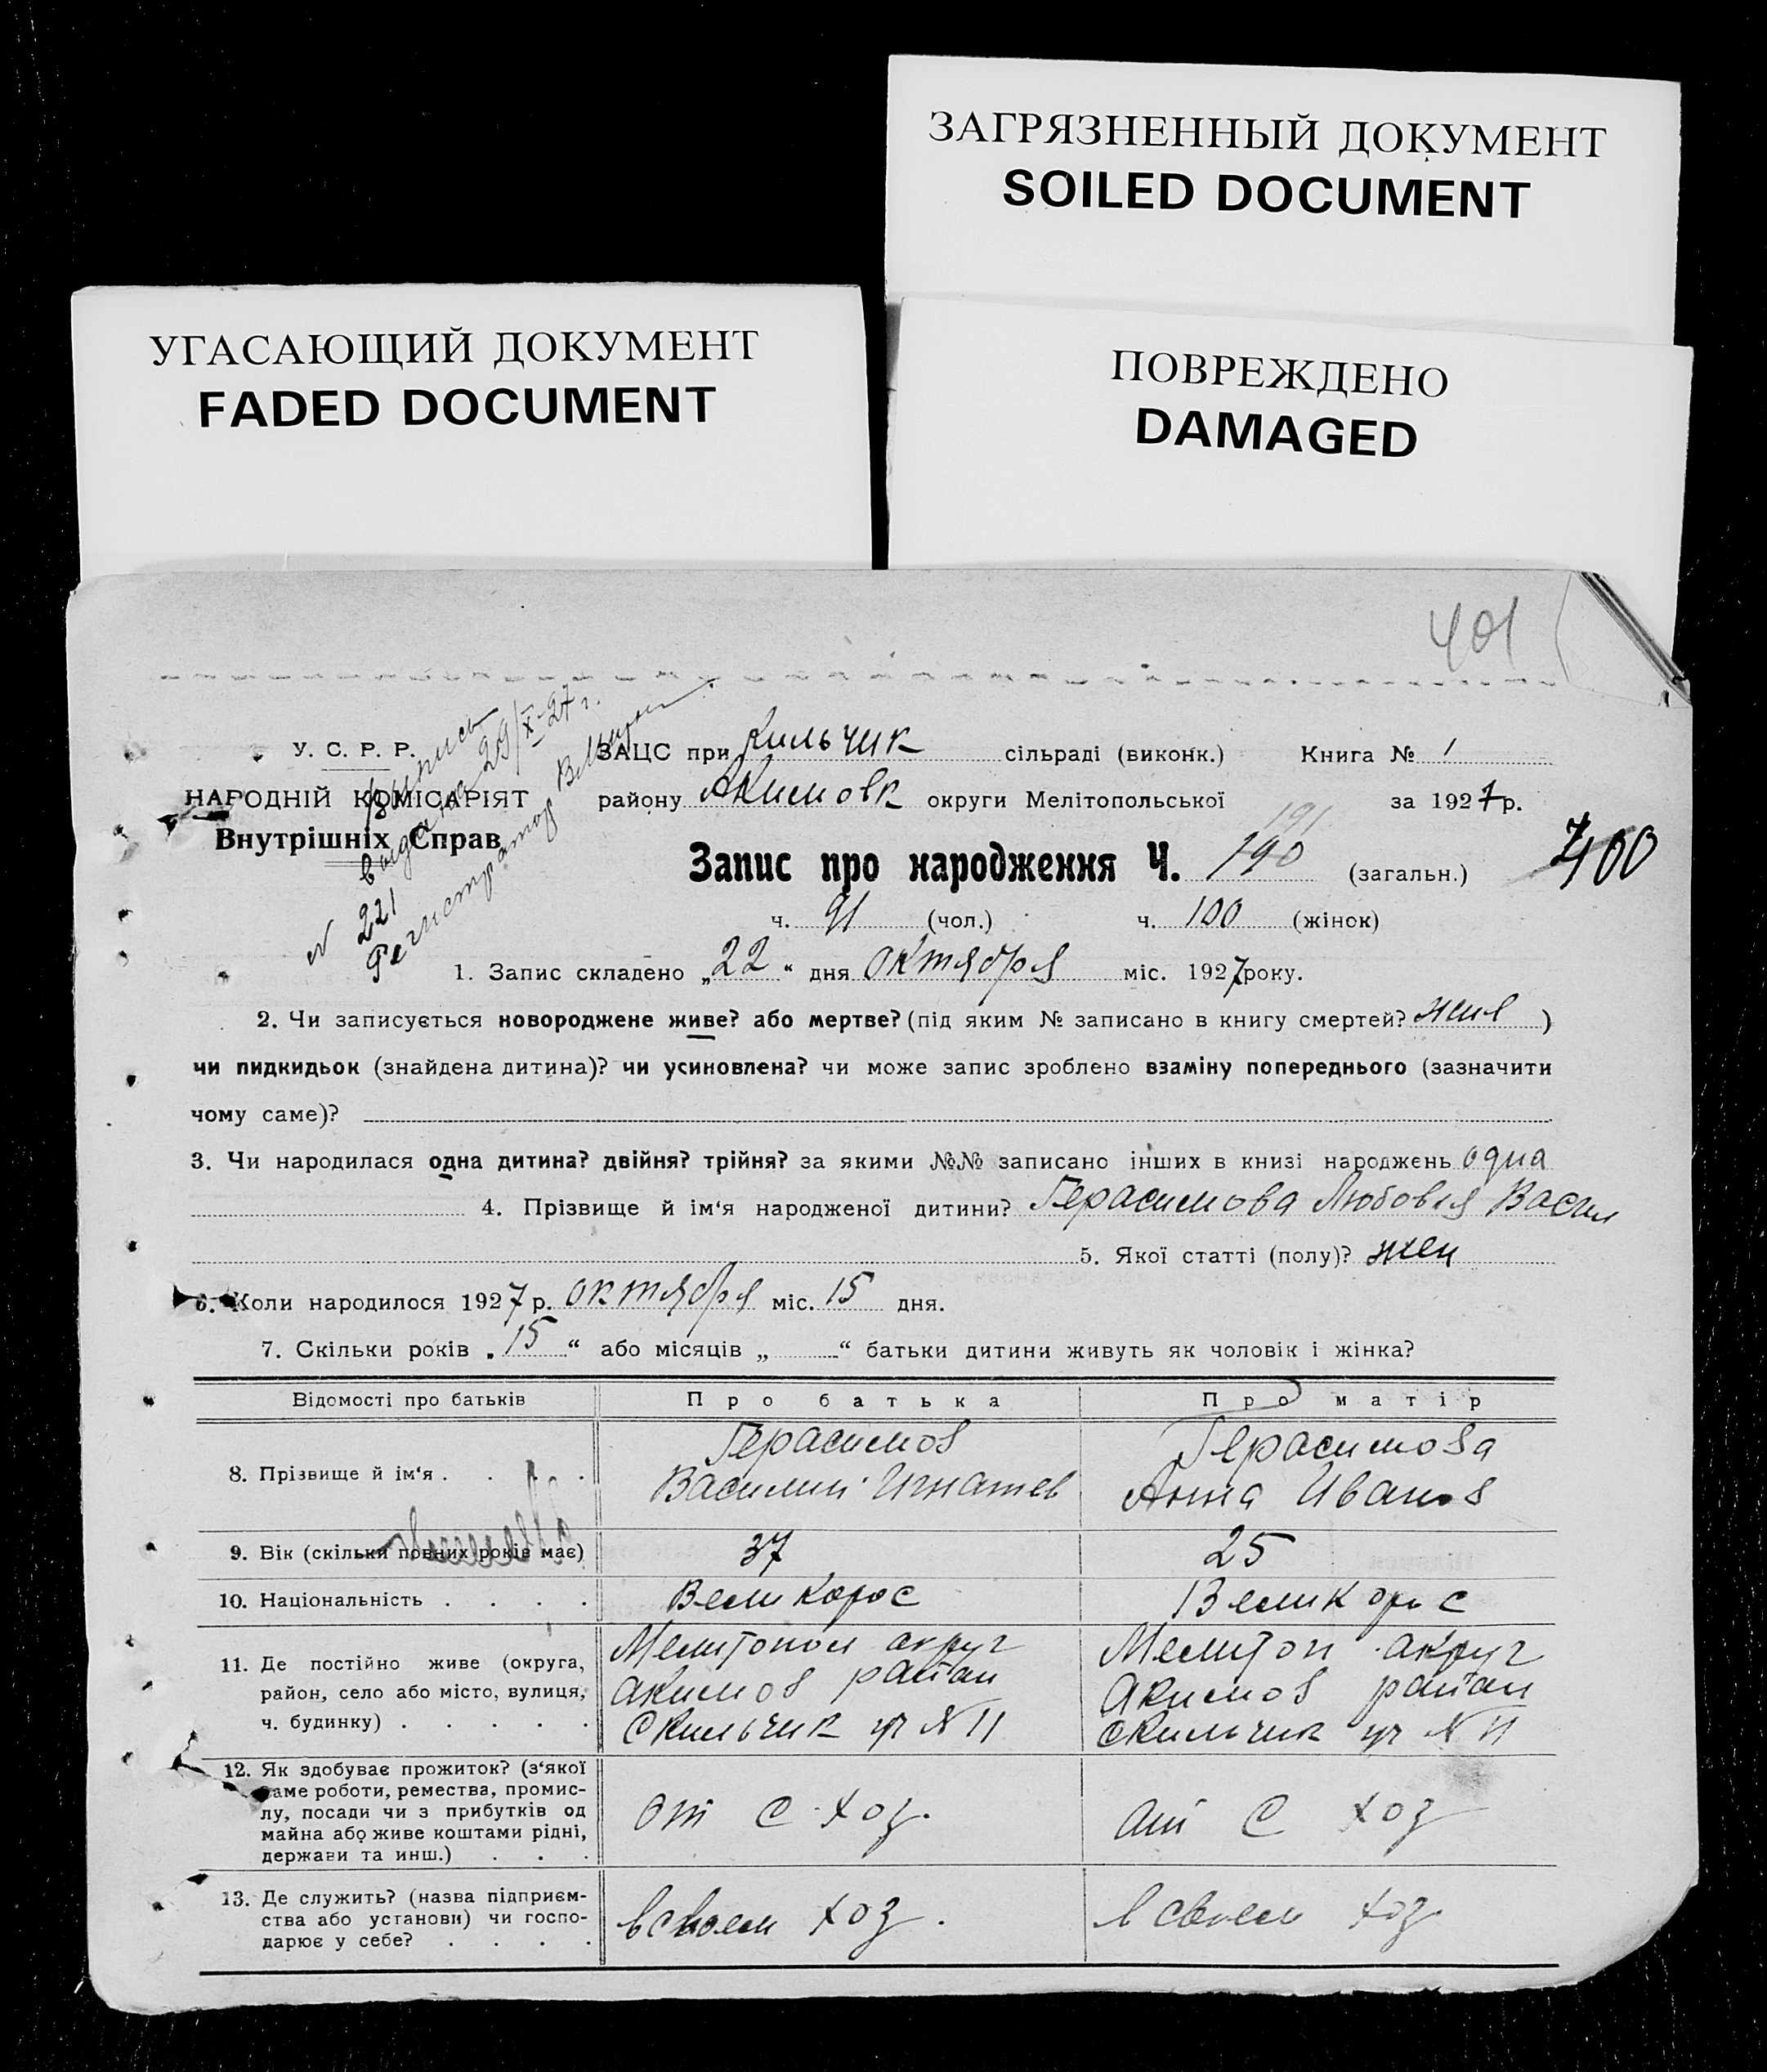 ЗАГРЯЗНЕННЫЙ ДОКУМЕНТ
SOILED DOCUMENT
УГАСАЮЩИЙ ДОКУМЕНТ
FADED DOCUMENT
ПОВРЕЖДЕНО
DAMAGED
401
У. С. Р. Р.
НАРОДНІЙ КОМІСАРІЯТ
Внутрішніх Справ
Выпись
выдана 29/X-27 г.
N 221
Регистратор
ЗАЦС при Кильчик сільраді (виконк.) Книга № 1
району Акимовк округи Мелітопольської за 1927 р.
191
Запис про народження Ч. 190 (загальн.) 400
ч. 91 (чол.) ч. 100 (жінок)
1. Запис складено „22“ дня октября міс. 1927 року.
2. Чи записується новороджене живе? або мертве? (під яким № записано в книгу смертей? )
чи пидкидьок (знайдена дитина)? чи усиновлена? чи може запис зроблено взаміну попереднього (зазначити
чому саме)?
3. Чи народилася одна дитина? двійня? трійня? за якими №№ записано інших в книзі народжень одна
4. Прізвище й ім‘я народженої дитини? Герасимова Любовья Васил
5. Якої статті (полу)? жен
6. Коли народилося 1927 р. октября міс. 15 дня.
7. Скільки років „15“ або місяців „ “ батьки дитини живуть як чоловік і жінка?
Відомості про батьків Про батька Про матір
8. Прізвище й ім‘я . . . . Герасимов Герасимова
Василий Игнатев Анна Иванов
9. Вік (скільки повних років має) 37 25
10. Національність . . . . Великорос Великорос
11. Де постійно живе (округа, Мелитопол округ Мелитоп округ
район, село або місто, вулиця, Акимов район Акимов район
ч. будинку) . . . . . с Кильчик уч N 11 с Кильчик уч N 11
12. Як здобуває прожиток? (з‘якої
саме роботи, ремества, промис-
лу, посади чи з прибутків од От с хоз. От с хоз
майна або живе коштами рідні,
держави та инш.) . . .
13. Де служить? (назва підприєм-
ства або установи) чи госпо- в своем хоз. в своем хоз
дарює у себе? . . . .